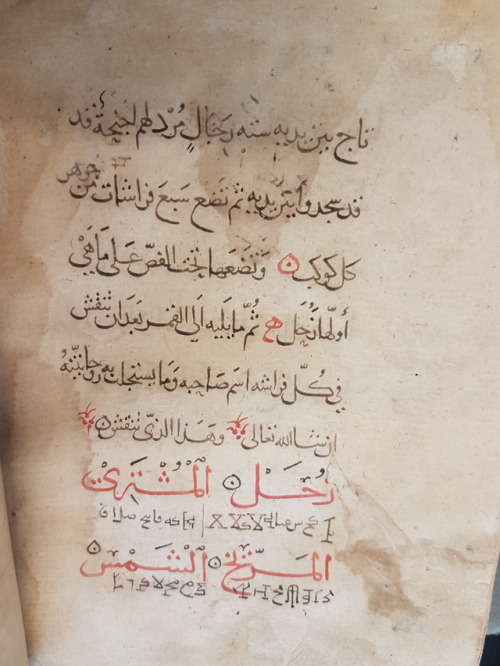 تاج بين يديه سته رجال مُرْد لهم اجنحة قد
قد سجدوا بين يديه ثم تضع سبع فراشات من جوهر
كل كوكب وتضعها تحت الفصّ على ما هي
أولها زُحَل هج ثُمّ ما يليه الى القمر بعد ان تنقش
في كُلّ فراشه اسم صاحبه وما يستجاب به روحانيّته
ان شا الله تعالى وهذا الذي تنقش
زُحَل المُشْتري
المرّيخ الشمس